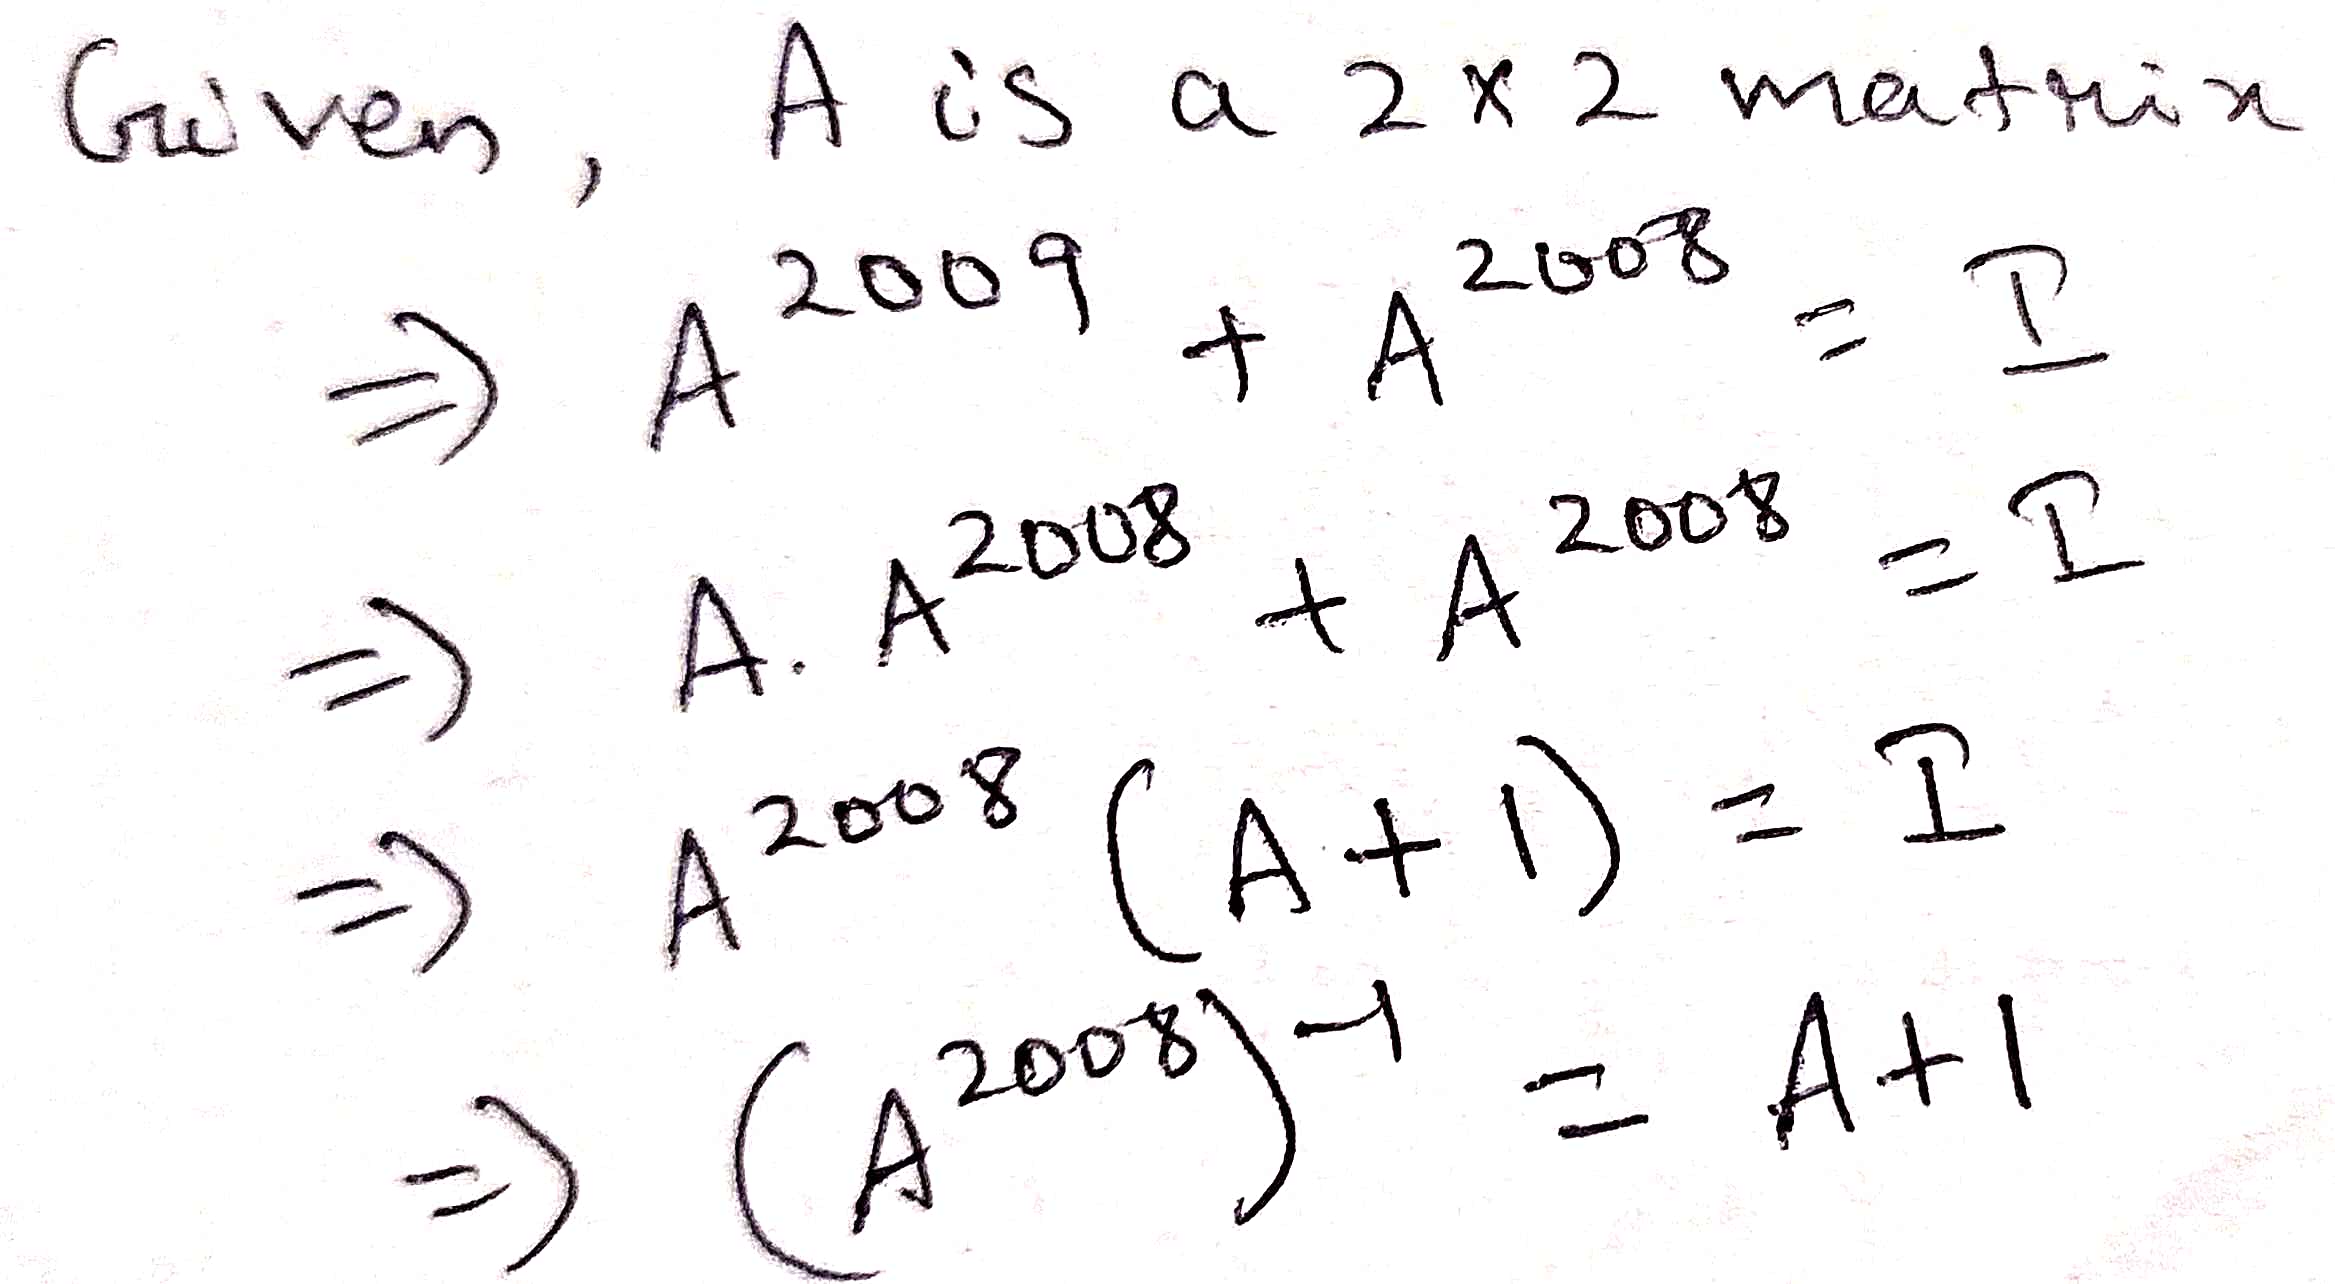 Given, A is a 2 × 2 matrix
⇒ A^2009 + A^2008 = I
⇒ A. A^2008 + A^2008 = I
⇒ A^2008 (A + 1) = I
⇒ (A^2008)^-1 = A + 1